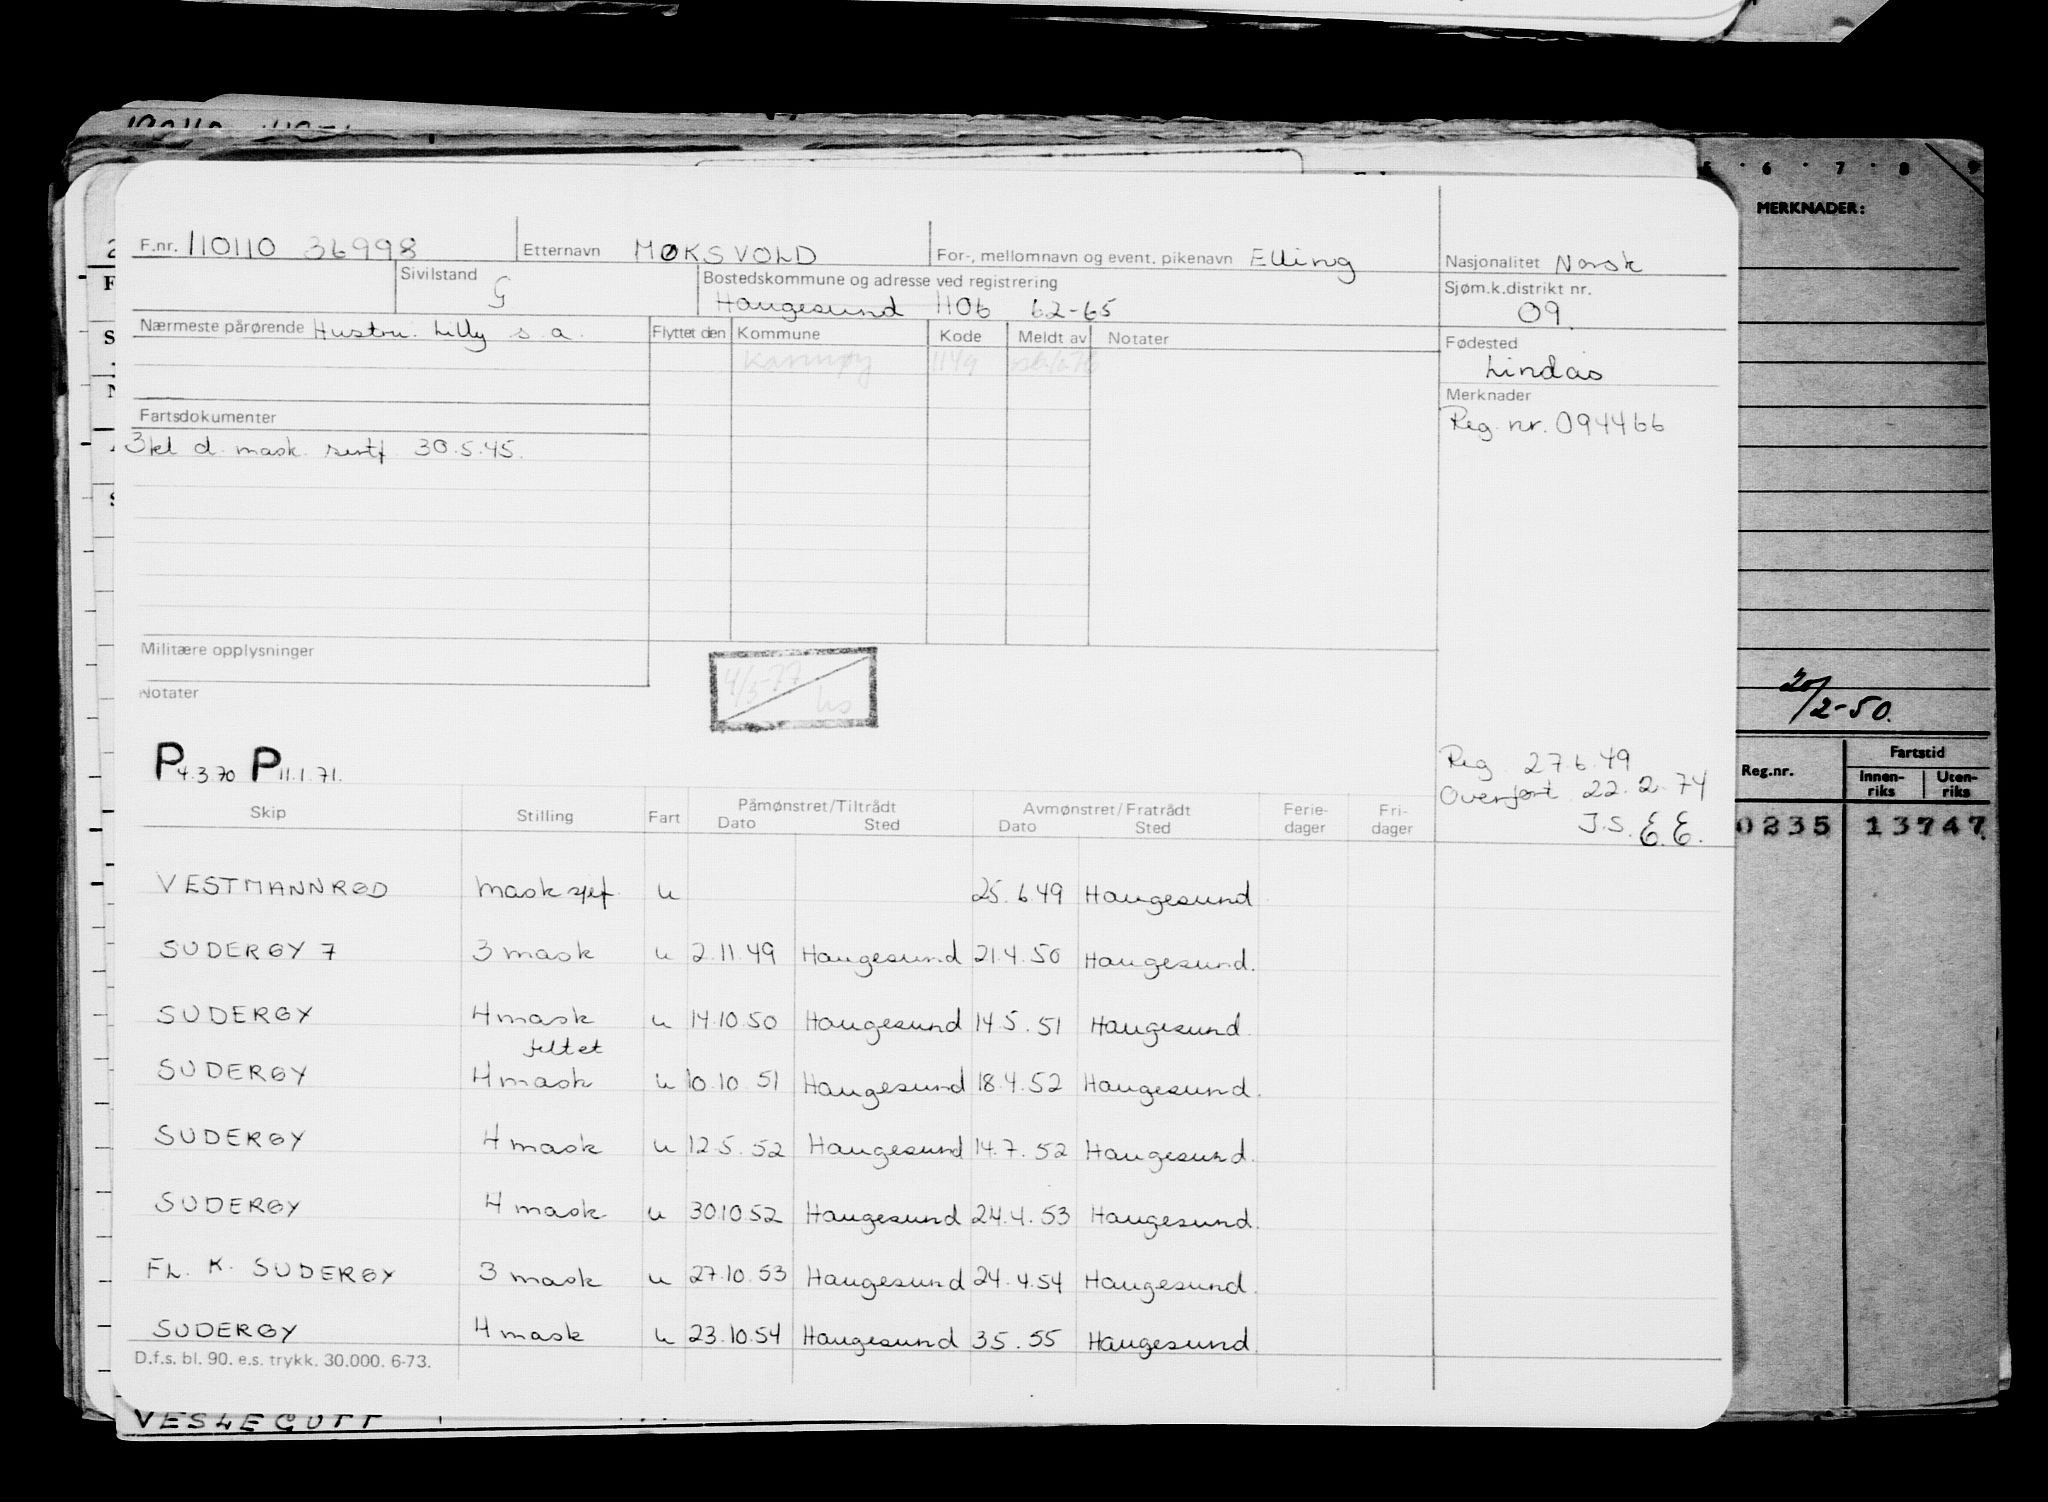 F.nr. 110110 36998 Etternavn MØKSVOLD For-, mellomnavn og event. pikenavn Elling Nasjonalitet Norsk
Sivilstand G Bostedskommune og adresse ved registrering Haugesund 1106 62-65 Sjøm.k.distrikt nr. 09.
Nærmeste pårørende Hustru: Lilly s. a. Flyttet den Kommune Kode Meldt av Notater Fødested Lindås
Karmøy 1149
Merknader
Fartsdokumenter Reg. nr. 094466
3 kl d. mask. sertf 30.5.45.
Militære opplysninger
4/5-77
Notater
P 4.3.70 P 11.1.71.
Reg. 27.6.49
Overført 22.2.74
J.S. E.E.
Skip Stilling Fart Påmønstret/Tiltrådt Dato Sted Avmønstret/Fratrådt Dato Sted Ferie-dager Fri-dager
VESTMANNRØD mask sjef. u 25.6.49 Haugesund
SUDERØY 7 3 mask u 2.11.49 Haugesund 21.4.50 Haugesund.
SUDERØY 4 mask u 14.10.50 Haugesund 14.5.51 Haugesund.
feltet
SUDERØY 4 mask u 10.10.51 Haugesund 18.4.52 Haugesund.
SUDERØY 4 mask u 12.5.52 Haugesund 14.7.52 Haugesund.
SUDERØY 4 mask u 30.10.52 Haugesund 24.4.53 Haugesund.
FL. K. SUDERØY 3 mask u 27.10.53 Haugesund 24.4.54 Haugesund.
SUDERØY 4 mask u 23.10.54 Haugesund 3.5.55 Haugesund.
D.f.s. bl. 90. e.s. trykk. 30.000. 6-73.
VESLEGUTT
6 7 8 9
MERKNADER:
20/2-50.
Reg.nr. Fartstid
Innen-riks Uten-riks
0235 13747